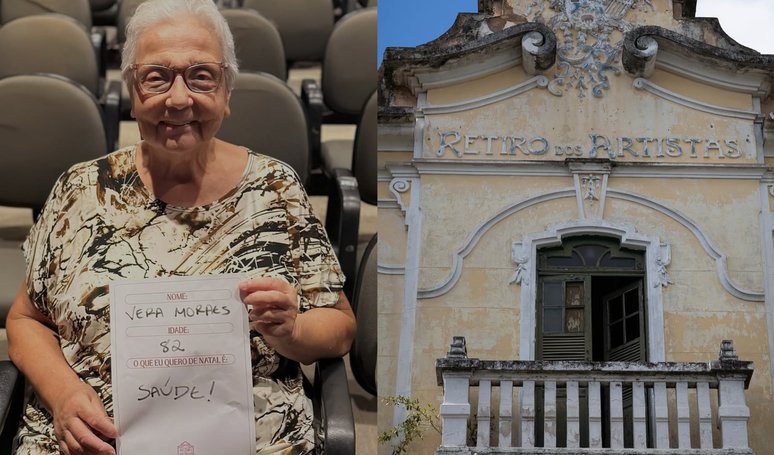 NOME:
VERA MORAES
IDADE:
82
O QUE EU QUERO DE NATAL É:
SAÚDE!
RETIRO DOS ARTISTAS